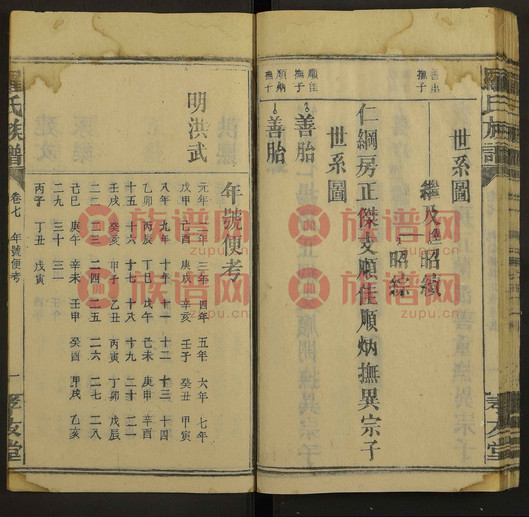 羅氏族譜
孝友堂
世系圖
繼及
昭績
昭綜
仁綱房正傑支順佳順炳撫異宗子
世系圖
順佳
撫子
善胎
順炳
撫子
善胎
年號便考
明洪武
元年 二年 三年 四年 五年 六年 七年
戊申 己酉 庚戌 辛亥 壬子 癸丑 甲寅
八年 九年 十年 十一 十二 十三 十四
乙卯 丙辰 丁巳 戊午 己未 庚申 辛酉
十五 十六 十七 十八 十九 二十 二一
壬戌 癸亥 甲子 乙丑 丙寅 丁卯 戊辰
二二 二三 二四 二五 二六 二七 二八
己巳 庚午 辛未 壬申 癸酉 甲戌 乙亥
二九 三十 三一
丙子 丁丑 戊寅
羅氏族譜
卷七
年號便考
一
孝友堂
族谱网
zupu.cn
族谱网
zupu.cn
族谱网
zupu.cn
族谱网
zupu.cn